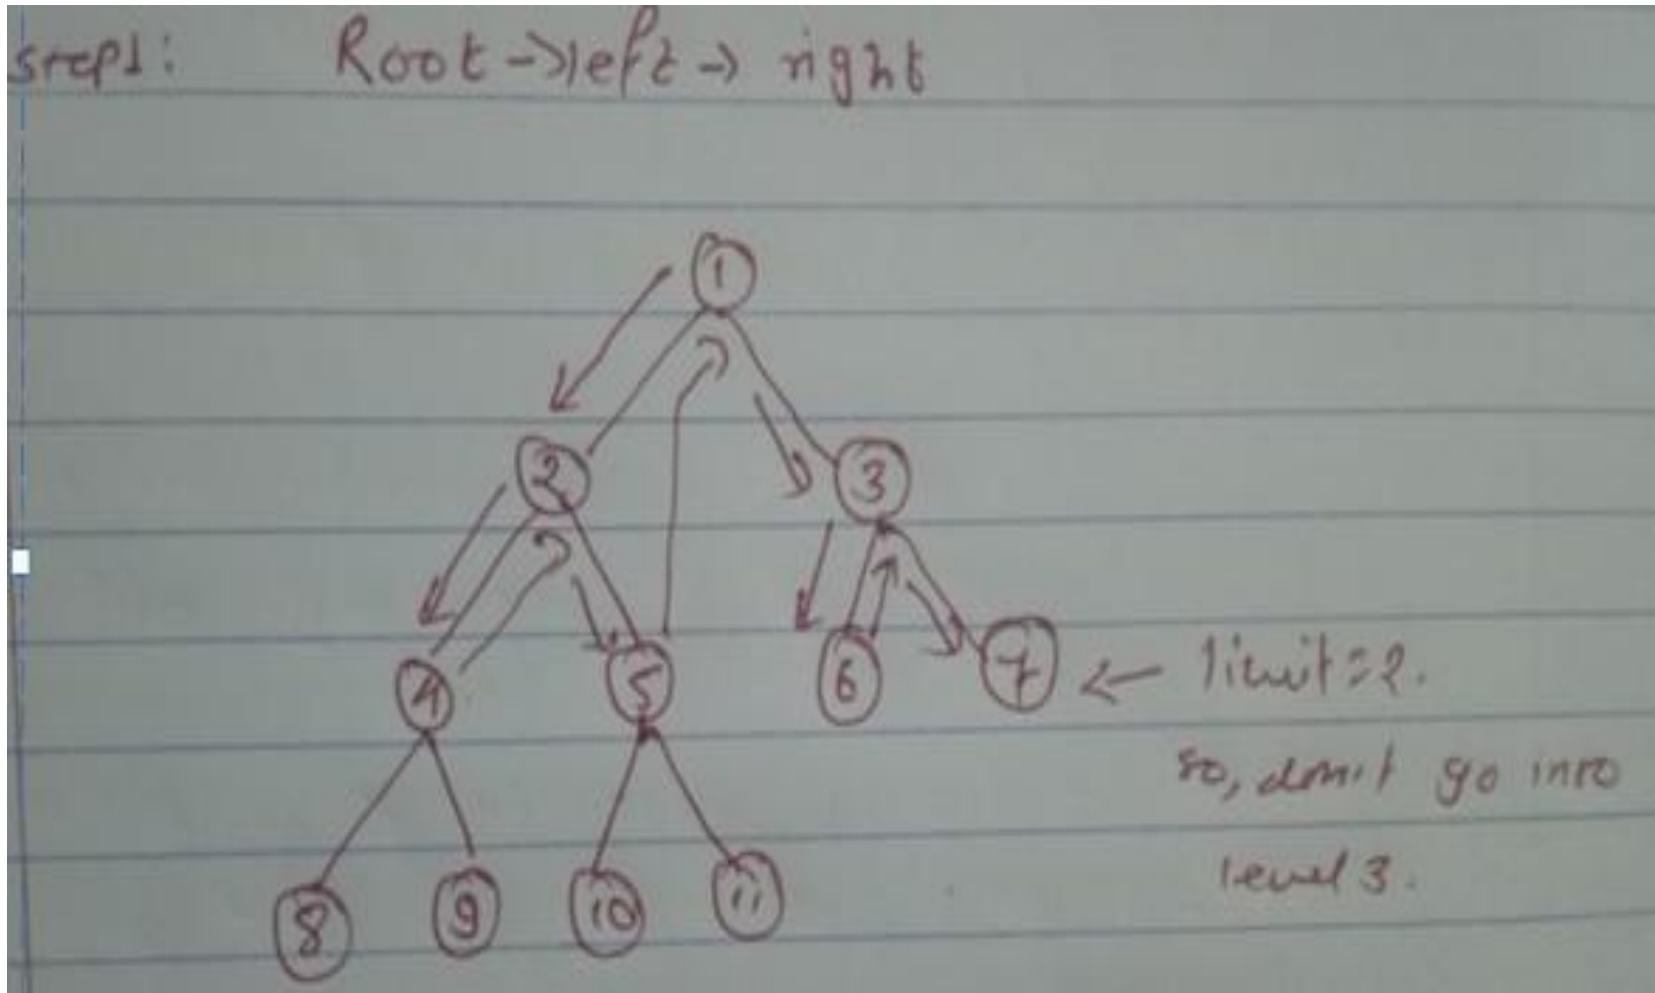 step1: Root → left → right
1
2 3
4 5 6 7 ← limit=2.
so, don't go into
level 3.
8 9 10 11